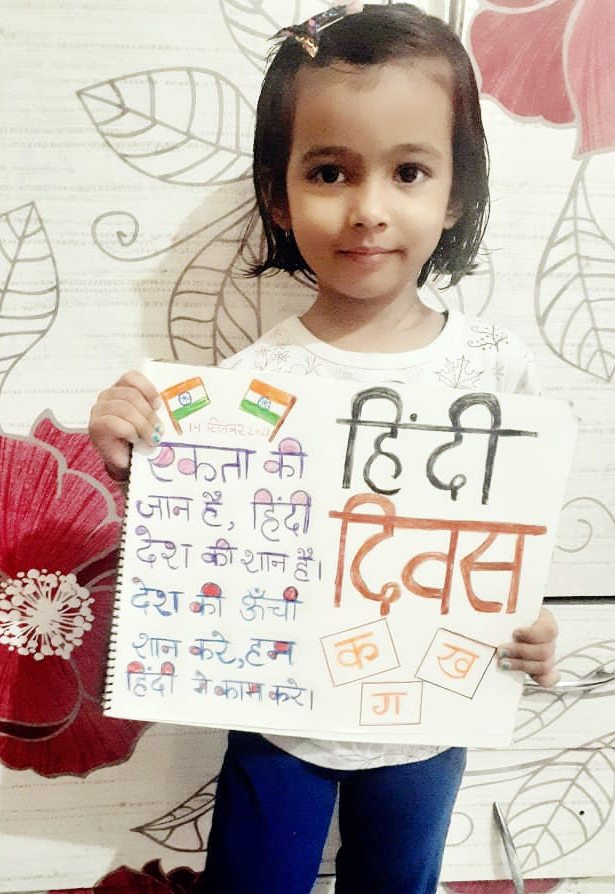 14 सितंबर 2021
एकता की
जान है, हिंदी
देश की शान है।
देश की ऊँची
शान करे, हम
हिंदी मे काम करे।
हिंदी
दिवस
क
ख
ग